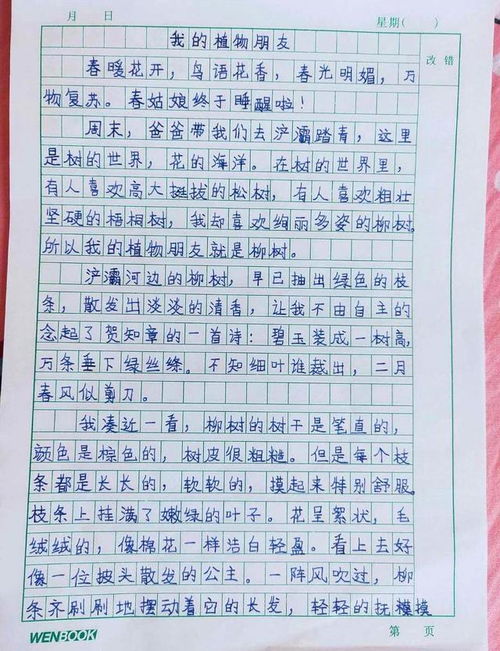 月 日 星期( )
我的植物朋友 改错
春暖花开，鸟语花香，春光明媚，万
物复苏。春姑娘终于睡醒啦！
周末，爸爸带我们去浐灞踏青，这里
是树的世界，花的海洋。在树的世界里，
有人喜欢高大挺拔的松树，有人喜欢粗壮
坚硬的梧桐树，我却喜欢绚丽多姿的柳树。
所以我的植物朋友就是柳树。
浐灞河边的柳树，早已抽出绿色的枝
条，散发出淡淡的清香，让我不由自主的
念起了贺知章的一首诗：碧玉装成一树高，
万条垂下绿丝绦。不知细叶谁裁出，二月
春风似剪刀。
我凑近一看，柳树的树干是笔直的，
颜色是棕色的，树皮很粗糙。但是每个枝
条都是长长的，软软的，摸起来特别舒服。
枝条上挂满了嫩绿的叶子。花呈絮状，毛
绒绒的，像棉花一样洁白轻盈。看上去好
像一位披头散发的公主。一阵风吹过，柳
条齐刷刷地摆动着它的长发，轻轻的抚模摸
WENBOOK 第 页